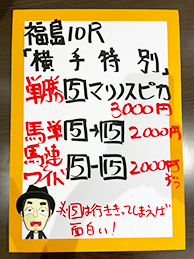 福島10R
「横手特別」
単勝 5 マリノスピカ
3000円
馬単 5→15 2000円
馬連 5-15 2000円
ワイド ずつ
※5は行ききってしまえば
面白い!